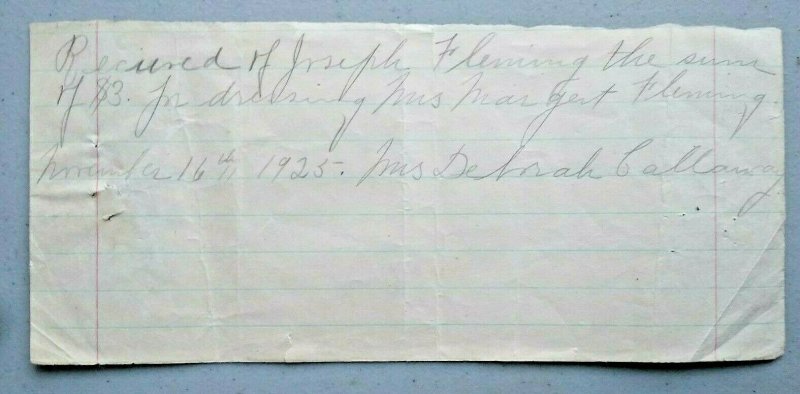 Recieved of Joseph Fleming the sum
of $3. for dressing Mrs Margert Fleming.
November 16th 1925. Mrs Deborah Callaway